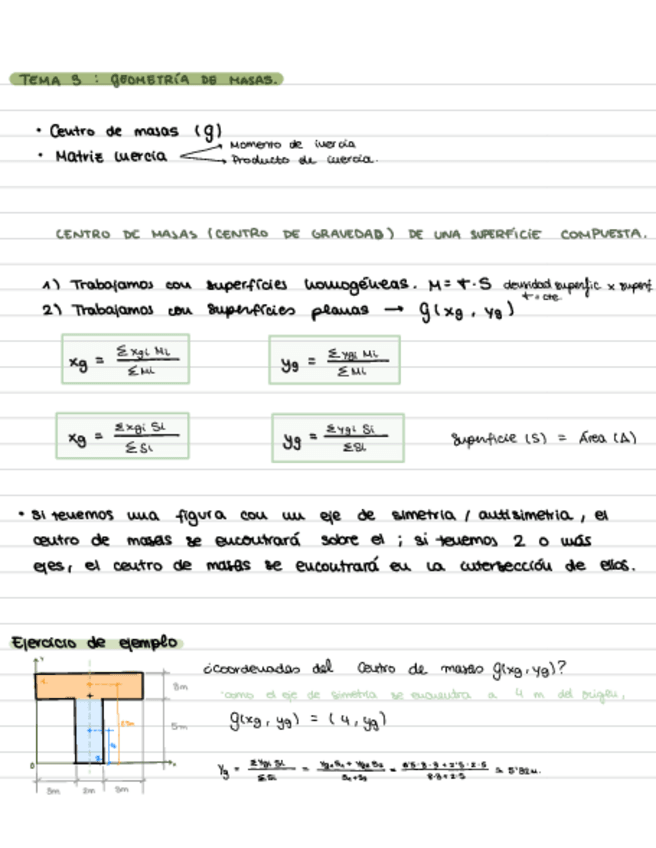 TEMA 3 : GEOMETRÍA DE MASAS.
• Centro de masas (g)
• Matriz inercia
Momento de inercia
Producto de inercia.
CENTRO DE MASAS (CENTRO DE GRAVEDAD) DE UNA SUPERFÍCIE COMPUESTA.
1) Trabajamos con superfícies homogéneas. M = σ · S densidad superfic x superf
σ = cte
2) Trabajamos con superfícies planas → g(xg, yg)
xg = Σxgi Mi / ΣMi    yg = Σygi Mi / ΣMi
xg = Σxgi Si / ΣSi    yg = Σygi Si / ΣSi    Superficie (S) = Área (A)
• Si tenemos una figura con un eje de simetria / antisimetria, el
centro de masas se encontrará sobre el ; si tenemos 2 o más
ejes, el centro de masas se encontrará en la intersección de ellos.
Ejercicio de ejemplo
¿coordenadas del centro de masas g(xg, yg)?
como el eje de simetria se encuentra a 4 m del origen,
g(xg, yg) = (4, yg)
Yg = ΣYgi Si / ΣSi =
5m
0
3m 2m 3m